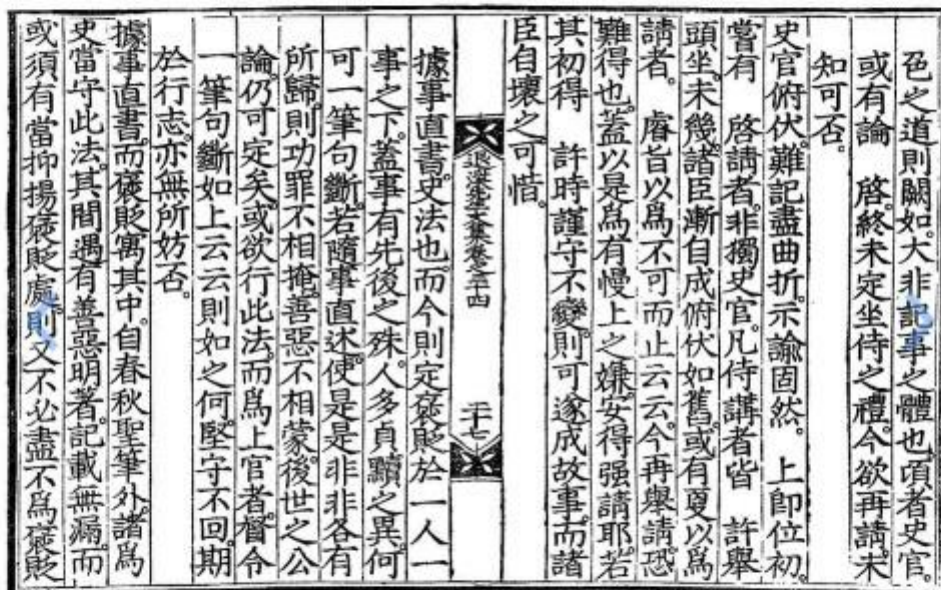 色之道則闕如。大非記事之體也。頃者史官。
或有論 啓終未定坐侍之禮。今欲再請。未
知可否。
史官俯伏。難記盡曲折。示諭固然。 上卽位初。
嘗有 啓請者。非獨史官。凡侍講者皆 許擧
頭坐。未幾。諸臣漸自成俯伏如舊。或有更以爲
請者。 睿旨以爲不可而止云云。今再擧請。恐
難得也。蓋以是爲有慢上之嫌。安得强請耶。若
其初得 許時謹守不變。則可遂成故事。而諸
臣自壞之。可惜。
退溪先生文集卷之二十四 二十七
據事直書。史法也。而今則定褒貶於一人一
事之下。蓋事有先後之殊。人多貞黷之異。何
可一筆句斷。若隨事直述。使是是非非各有
所歸。則功罪不相掩。善惡不相蒙。後世之公
論。仍可定矣。或欲行此法。而爲上官者。督令
一筆句斷如上云云則如之何。堅守不回。期
於行志。亦無所妨否。
據事直書。而褒貶寓其中。自春秋聖筆外。諸爲
史當守此法。其間遇有善惡明著。記載無漏。而
或須有當抑揚褒貶處。則又不必盡不爲褒貶